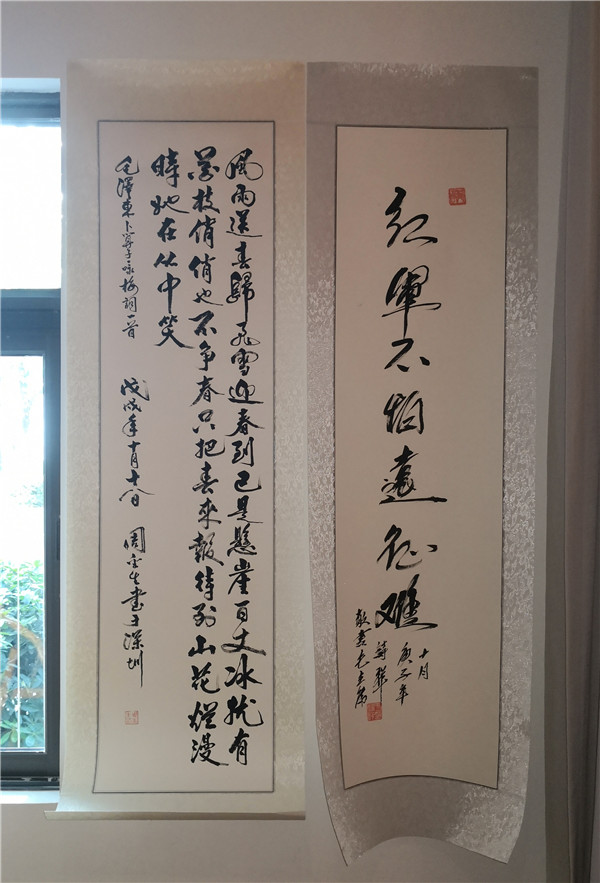 風雨送春歸飛雪迎春到已是懸崖百丈冰犹有
花枝俏俏也不争春只把春來報待到山花爛漫
時她在丛中笑
毛澤東卜算子咏梅詞一首 戊戌年十月十八日 周生書于深圳
紅軍不怕遠征難
敬書毛主席
詩
庚子年
十月